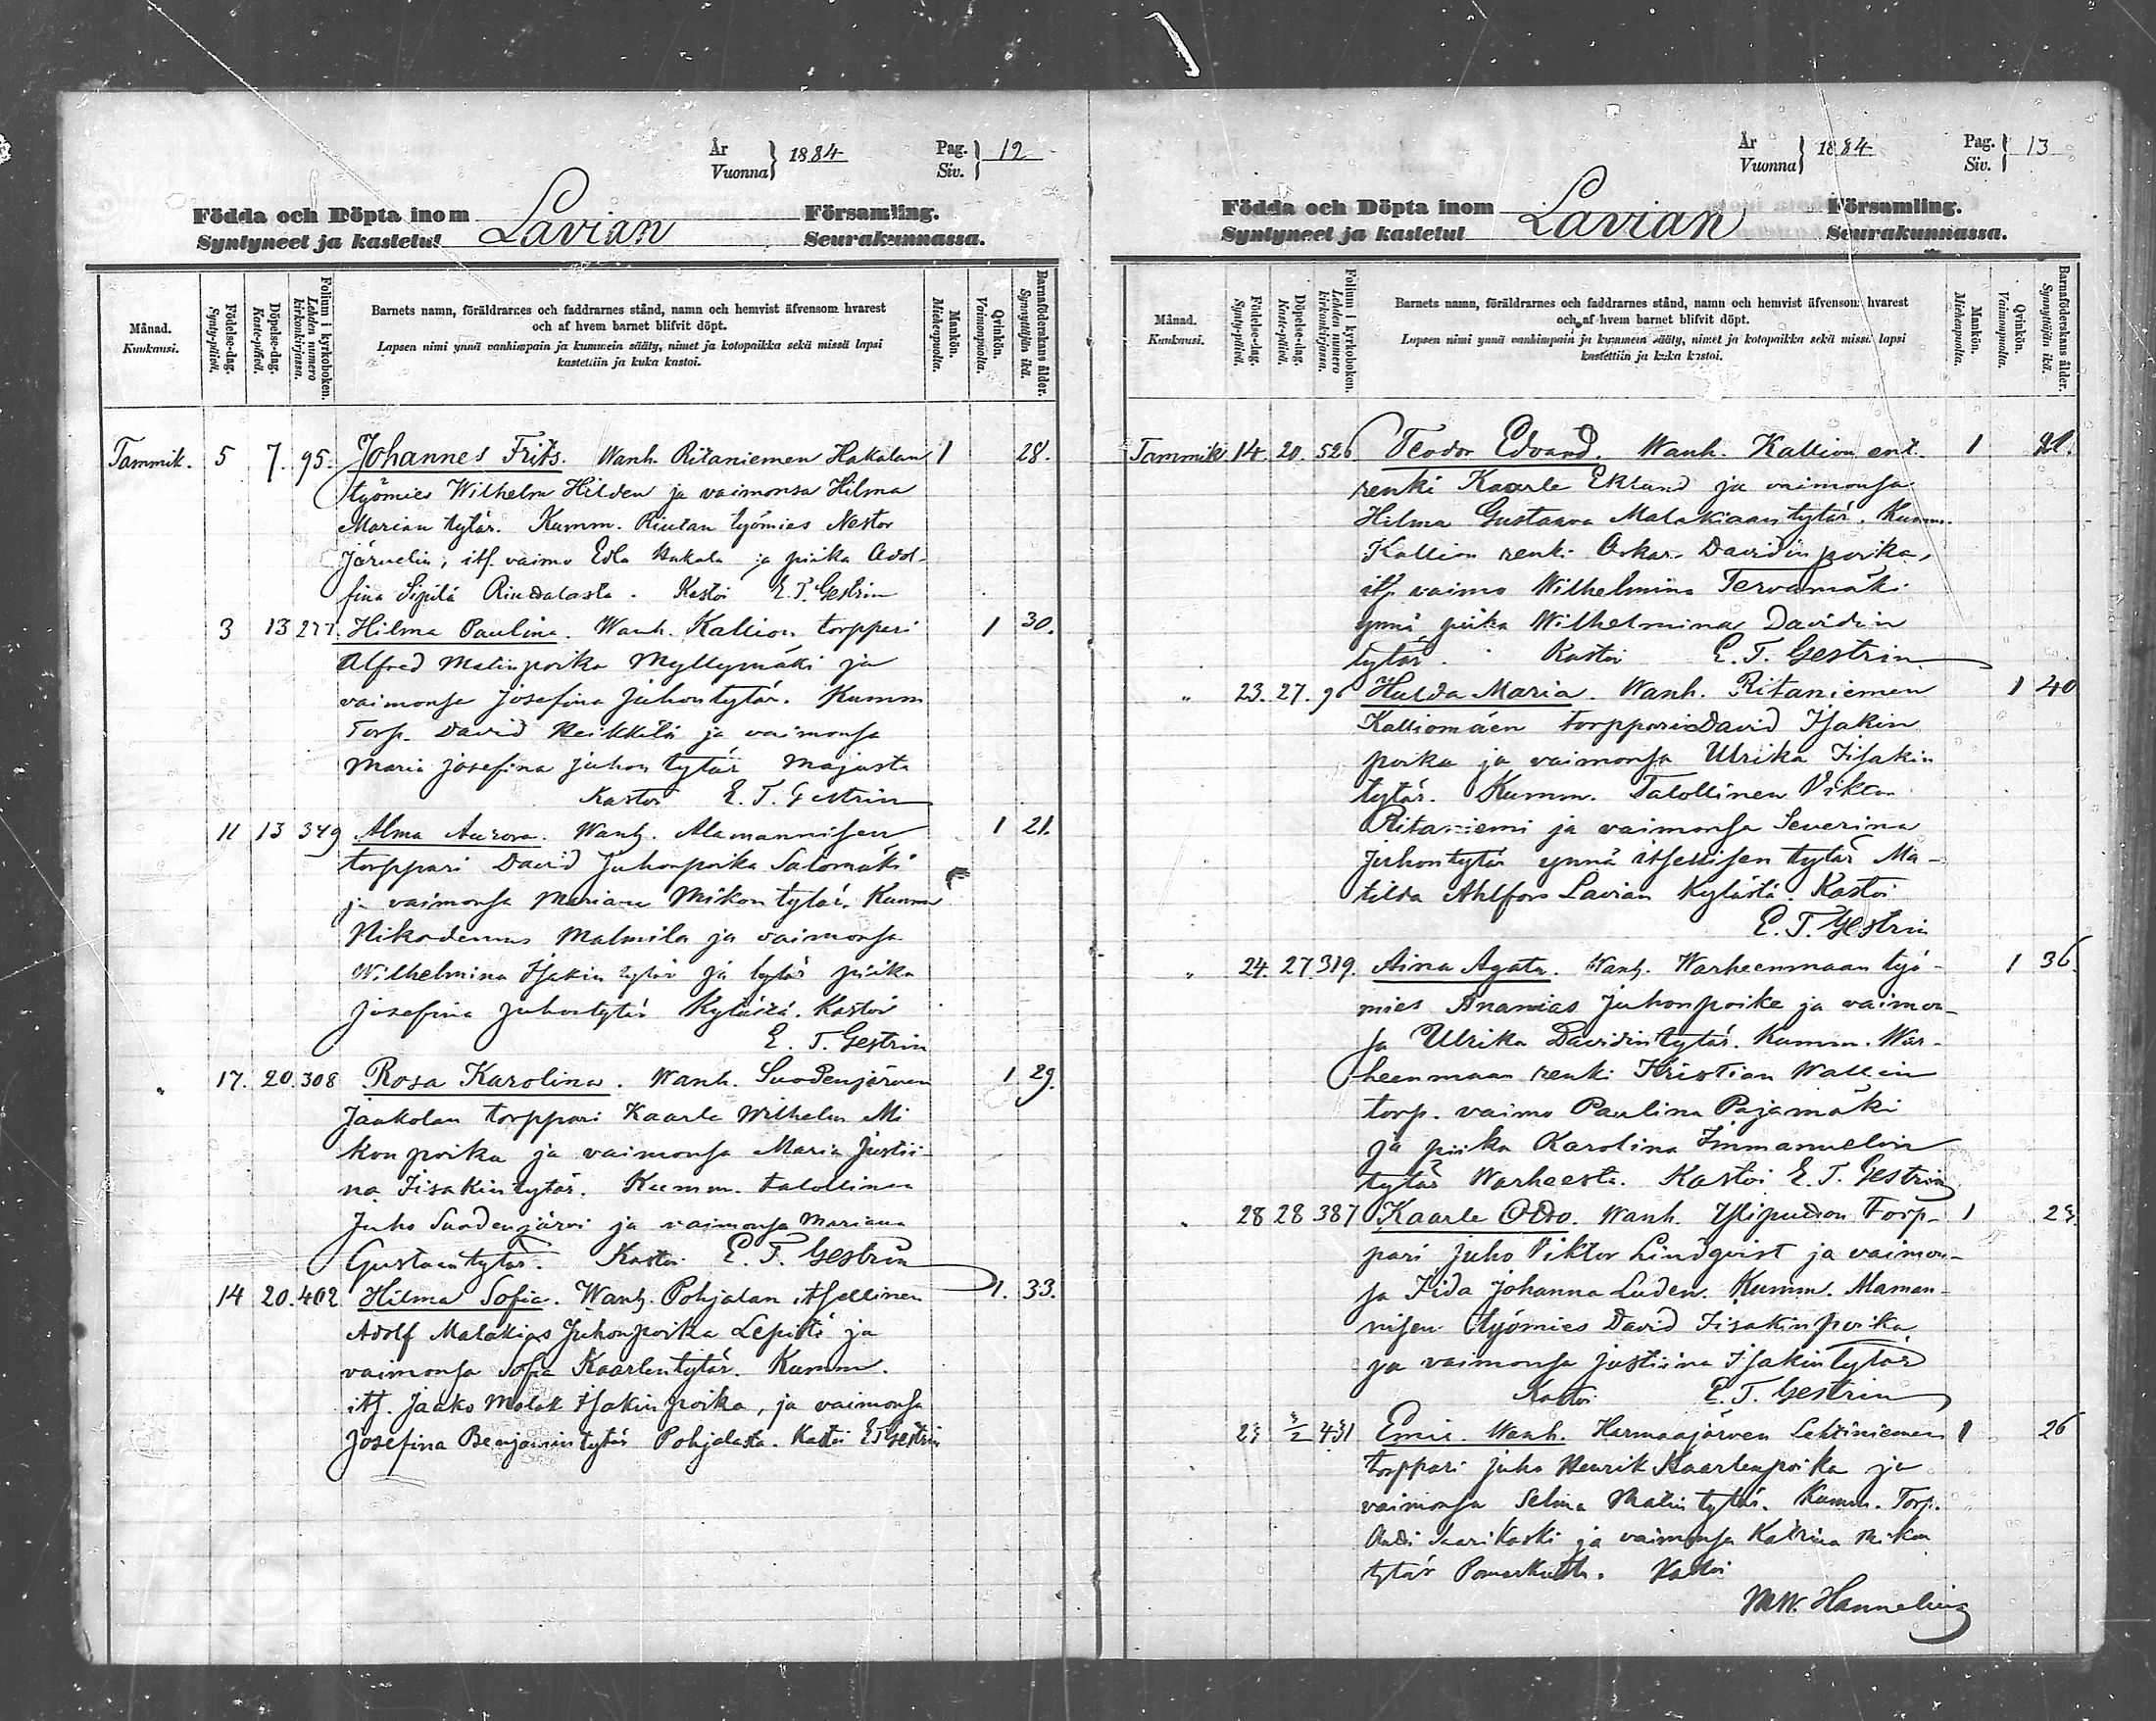 År
Vuonna } 1884
Pag.
Siv. } 12
Födda och Döpta inom Lavian Församling.
Syntyneet ja kastetut Seurakunnassa.
Månad.
Kuukausi.
Födelse-dag.
Synty-päivä.
Döpelse-dag.
Kaste-päivä.
Folium i kyrkoboken.
Lehden numero
kirkonkirjassa.
Barnets namn, föräldrarnes och faddrarnes stånd, namn och hemvist äfvensom hvarest
och af hvem barnet blifvit döpt.
Lapsen nimi ynnä vanhimpain ja kummein sääty, nimet ja kotopaikka sekä missä lapsi
kastettiin ja kuka kastoi.
Mankön.
Miehenpuolta.
Qvinkön.
Vaimonpuolta.
Barnaföderskans ålder.
Synnyttäjän ikä.
Tammik. 5 7. 95. Johannes Frits. Wanh. Ritaniemen Hakalan 1 28.
työmies Wilhelm Hilden ja vaimonsa Hilma
Marian tytär. Kumm. työmies Nestor
Järvelin, its. vaimo Edla Hakala ja piika Adol-
fina Sipilä. Kastoi E. T. Gestrin
3 13 277. Hilma Paulina. Wanh. Kallion torppari 1 30.
Alfred Matinpoika Myllymäki ja
vaimonsa Josefina Juhontytär. Kumm
Torp. David Heikkilä ja vaimonsa
Maria Josefina Juhon tytär Majasta
Kastoi E. T. Gestrin
11 13 349 Alma Aurora. Wanh. Alamannisen 1 21.
torppari David Juhonpoika Salomäki
ja vaimonsa Mariana Mikon tytär. Kumm
Nikodemus Malmila ja vaimonsa
Wilhelmina Isakin tytär ja tytär piika
Josefina Juhontytär Kylästä. Kastoi
E. T. Gestrin
" 17. 20. 308 Rosa Karolina. Wanh. Suodenjärven 1 29.
Jaakolan torppari Kaarle Wilhelm Mi
kon poika ja vaimonsa Maria Justii-
na Iisakintytär. Kumm. talollinen
Juho Suodenjärvi ja vaimonsa Mariana
Gustavintytär. Kastoi E. T. Gestrin
14 20. 402 Hilma Sofia. Wanh. Pohjalan itsellinen 1. 33.
Adolf Malakias Juhonpoika Lepistö ja
vaimonsa Sofia Kaarlentytär. Kumm.
its. Jaako Malak Isakin poika, ja vaimonsa
Josefina Benjamintytär Pohjalasta. Kastoi E T Gestrin
År
Vuonna } 1884
Pag.
Siv. } 13
Födda och Döpta inom Lavian Församling.
Syntyneet ja kastetut Seurakunnassa.
Månad.
Kuukausi.
Födelse-dag.
Synty-päivä.
Döpelse-dag.
Kaste-päivä.
Folium i kyrkoboken.
Lehden numero
kirkonkirjassa.
Barnets namn, föräldrarnes och faddrarnes stånd, namn och hemvist äfvensom hvarest
och af hvem barnet blifvit döpt.
Lapsen nimi ynnä vanhimpain ja kummein sääty, nimet ja kotopaikka sekä missä lapsi
kastettiin ja kuka kastoi.
Mankön.
Miehenpuolta.
Qvinkön.
Vaimonpuolta.
Barnaföderskans ålder.
Synnyttäjän ikä.
Tammik 14. 20. 526 Teodor Edvard. Wanh. Kallion ent. 1
renki Kaarle Eklund ja vaimonsa
Hilma Gustaava Malakiaan tytär. Kumm.
Kallion renki Oskar Davidin poika,
its. vaimo Wilhelmina Tervamäki
ynnä piika Wilhelmina Davidin
tytär. Kastoi E. T. Gestrin
" 23. 27. 96 Hulda Maria. Wanh. Ritaniemen 1 40
Kalliomäen torppari David Isakin
poika ja vaimonsa Ulrika Iisakin
tytär. Kumm. Talollinen Viktor
Ritaniemi ja vaimonsa Severina
Juhontytär ynnä itsellisen tytär Ma-
tilda Ahlfors Lavian Kylästä. Kastoi
E. T. Gestrin
" 24. 27 319. Aina Agata. Wanh. Warheenmaan työ- 1 36.
mies Ananias Juhonpoika ja vaimon-
sa Ulrika Davidintytär. Kumm. War-
heenmaan renki Kristian Wallin
torp. vaimo Paulina Pajamäki
ja piika Karolina Immanuelin
tytär Warheesta. Kastoi E. T. Gestrin
" 28 28 387 Kaarle Otto. Wanh. Torp- 1
pari Juho Viktor Lindqvist ja vaimon-
sa Iida Johanna Luden. Kumm. Maman-
nisen työmies David Iisakin poika
ja vaimonsa Justiina Isakin tytär
Kastoi E. T. Gestrin
431 Emil. Wanh. Harmaajärven Lehtiniemen 1 26
torppari Juho Henrik Kaarlenpoika ja
vaimonsa Selma Matin tytär. Kumm. Torp.
Antti Saarikoski ja vaimonsa Katrina Mikon
tytär. Kastoi
M.W. Hannelius